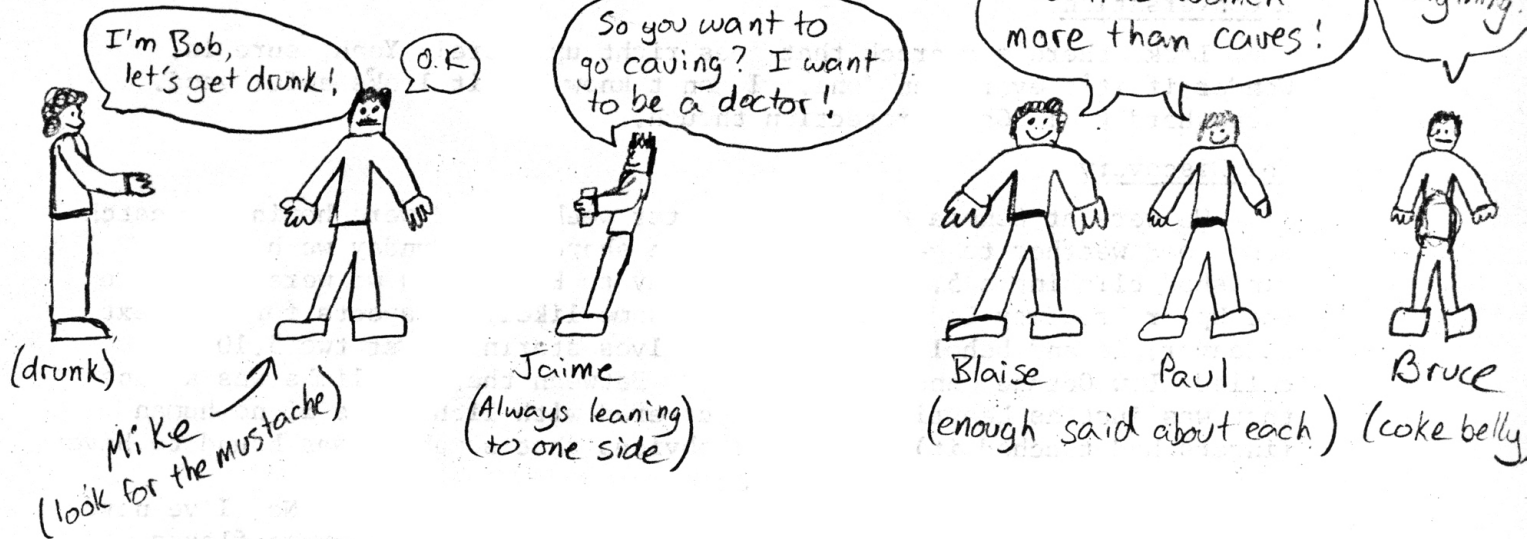 I'm Bob,
let's get drunk!
O.K
So you want to
go caving? I want
to be a doctor!
more than caves!
(drunk)
Mike
(look for the mustache)
Jaime
(Always leaning
to one side)
Blaise
Paul
(enough said about each)
Bruce
(coke belly)